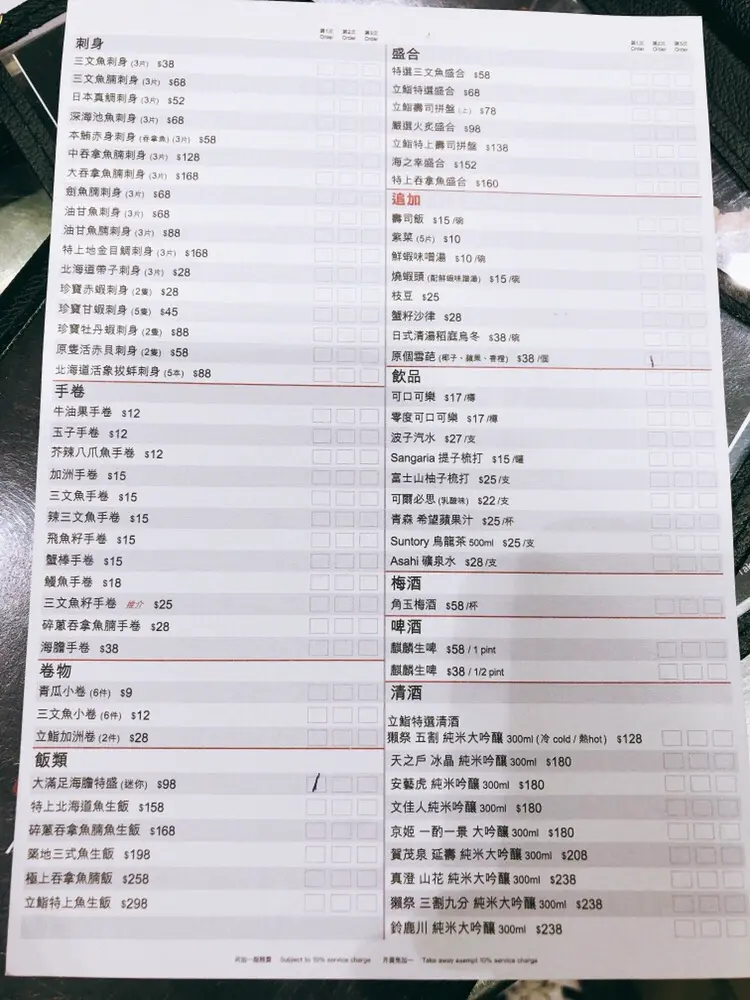 第1次 第2次 第3次
Order Order Order
刺身
三文魚刺身 (3片) $38
三文魚腩刺身 (3片) $68
日本真鯛刺身 (3片) $52
深海池魚刺身 (3片) $68
本鮪赤身刺身 (吞拿魚) (3片) $58
中吞拿魚腩刺身 (3片) $128
大吞拿魚腩刺身 (3片) $168
劍魚腩刺身 (3片) $68
油甘魚刺身 (3片) $68
油甘魚腩刺身 (3片) $88
特上地金目鯛刺身 (3片) $168
北海道帶子刺身 (3片) $28
珍寶赤蝦刺身 (2隻) $28
珍寶甘蝦刺身 (5隻) $45
珍寶牡丹蝦刺身 (2隻) $88
原隻活赤貝刺身 (2隻) $58
北海道活象拔蚌刺身 (5本) $88
手卷
牛油果手卷 $12
玉子手卷 $12
芥辣八爪魚手卷 $12
加洲手卷 $15
三文魚手卷 $15
辣三文魚手卷 $15
飛魚籽手卷 $15
蟹棒手卷 $15
鰻魚手卷 $18
三文魚籽手卷 推介 $25
碎蔥吞拿魚腩手卷 $28
海膽手卷 $38
卷物
青瓜小卷 (6件) $9
三文魚小卷 (6件) $12
立鮨加洲卷 (2件) $28
飯類
大滿足海膽特盛 (迷你) $98
特上北海道魚生飯 $158
碎蔥吞拿魚腩魚生飯 $168
築地三式魚生飯 $198
極上吞拿魚腩飯 $258
立鮨特上魚生飯 $298
第1次 第2次 第3次
Order Order Order
盛合
特選三文魚盛合 $58
立鮨特選盛合 $68
立鮨壽司拼盤 (二) $78
嚴選火炙盛合 $98
立鮨特上壽司拼盤 $138
海之幸盛合 $152
特上吞拿魚盛合 $160
追加
壽司飯 $15 /碗
紫菜 (5片) $10
鮮蝦味噌湯 $10 /碗
燒蝦頭 (配鮮蝦味噌湯) $15 /碗
枝豆 $25
蟹籽沙律 $28
日式清湯稻庭烏冬 $38 /碗
原個雪葩 (椰子、蘋果、香橙) $38 /個
飲品
可口可樂 $17 /樽
零度可口可樂 $17 /樽
波子汽水 $27 /支
Sangaria 提子梳打 $15 /罐
富士山柚子梳打 $25 /支
可爾必思 (乳酸味) $22 /支
青森 希望蘋果汁 $25 /杯
Suntory 烏龍茶 500ml $25 /支
Asahi 礦泉水 $28 /支
梅酒
角玉梅酒 $58 /杯
啤酒
麒麟生啤 $58 / 1 pint
麒麟生啤 $38 / 1/2 pint
清酒
立鮨特選清酒
獺祭 五割 純米大吟釀 300ml (冷 cold / 熱hot) $128
天之戶 冰晶 純米吟釀 300ml $180
安藝虎 純米吟釀 300ml $180
文佳人純米吟釀 300ml $180
京姬 一酌一景 大吟釀 300ml $180
賀茂泉 延壽 純米大吟釀 300ml $208
真澄 山花 純米大吟釀 300ml $238
獺祭 三割九分 純米大吟釀 300ml $238
鈴鹿川 純米大吟釀 300ml $238
另加一服務費 Subject to 10% service charge 外賣免加一 Take away exempt 10% service charge